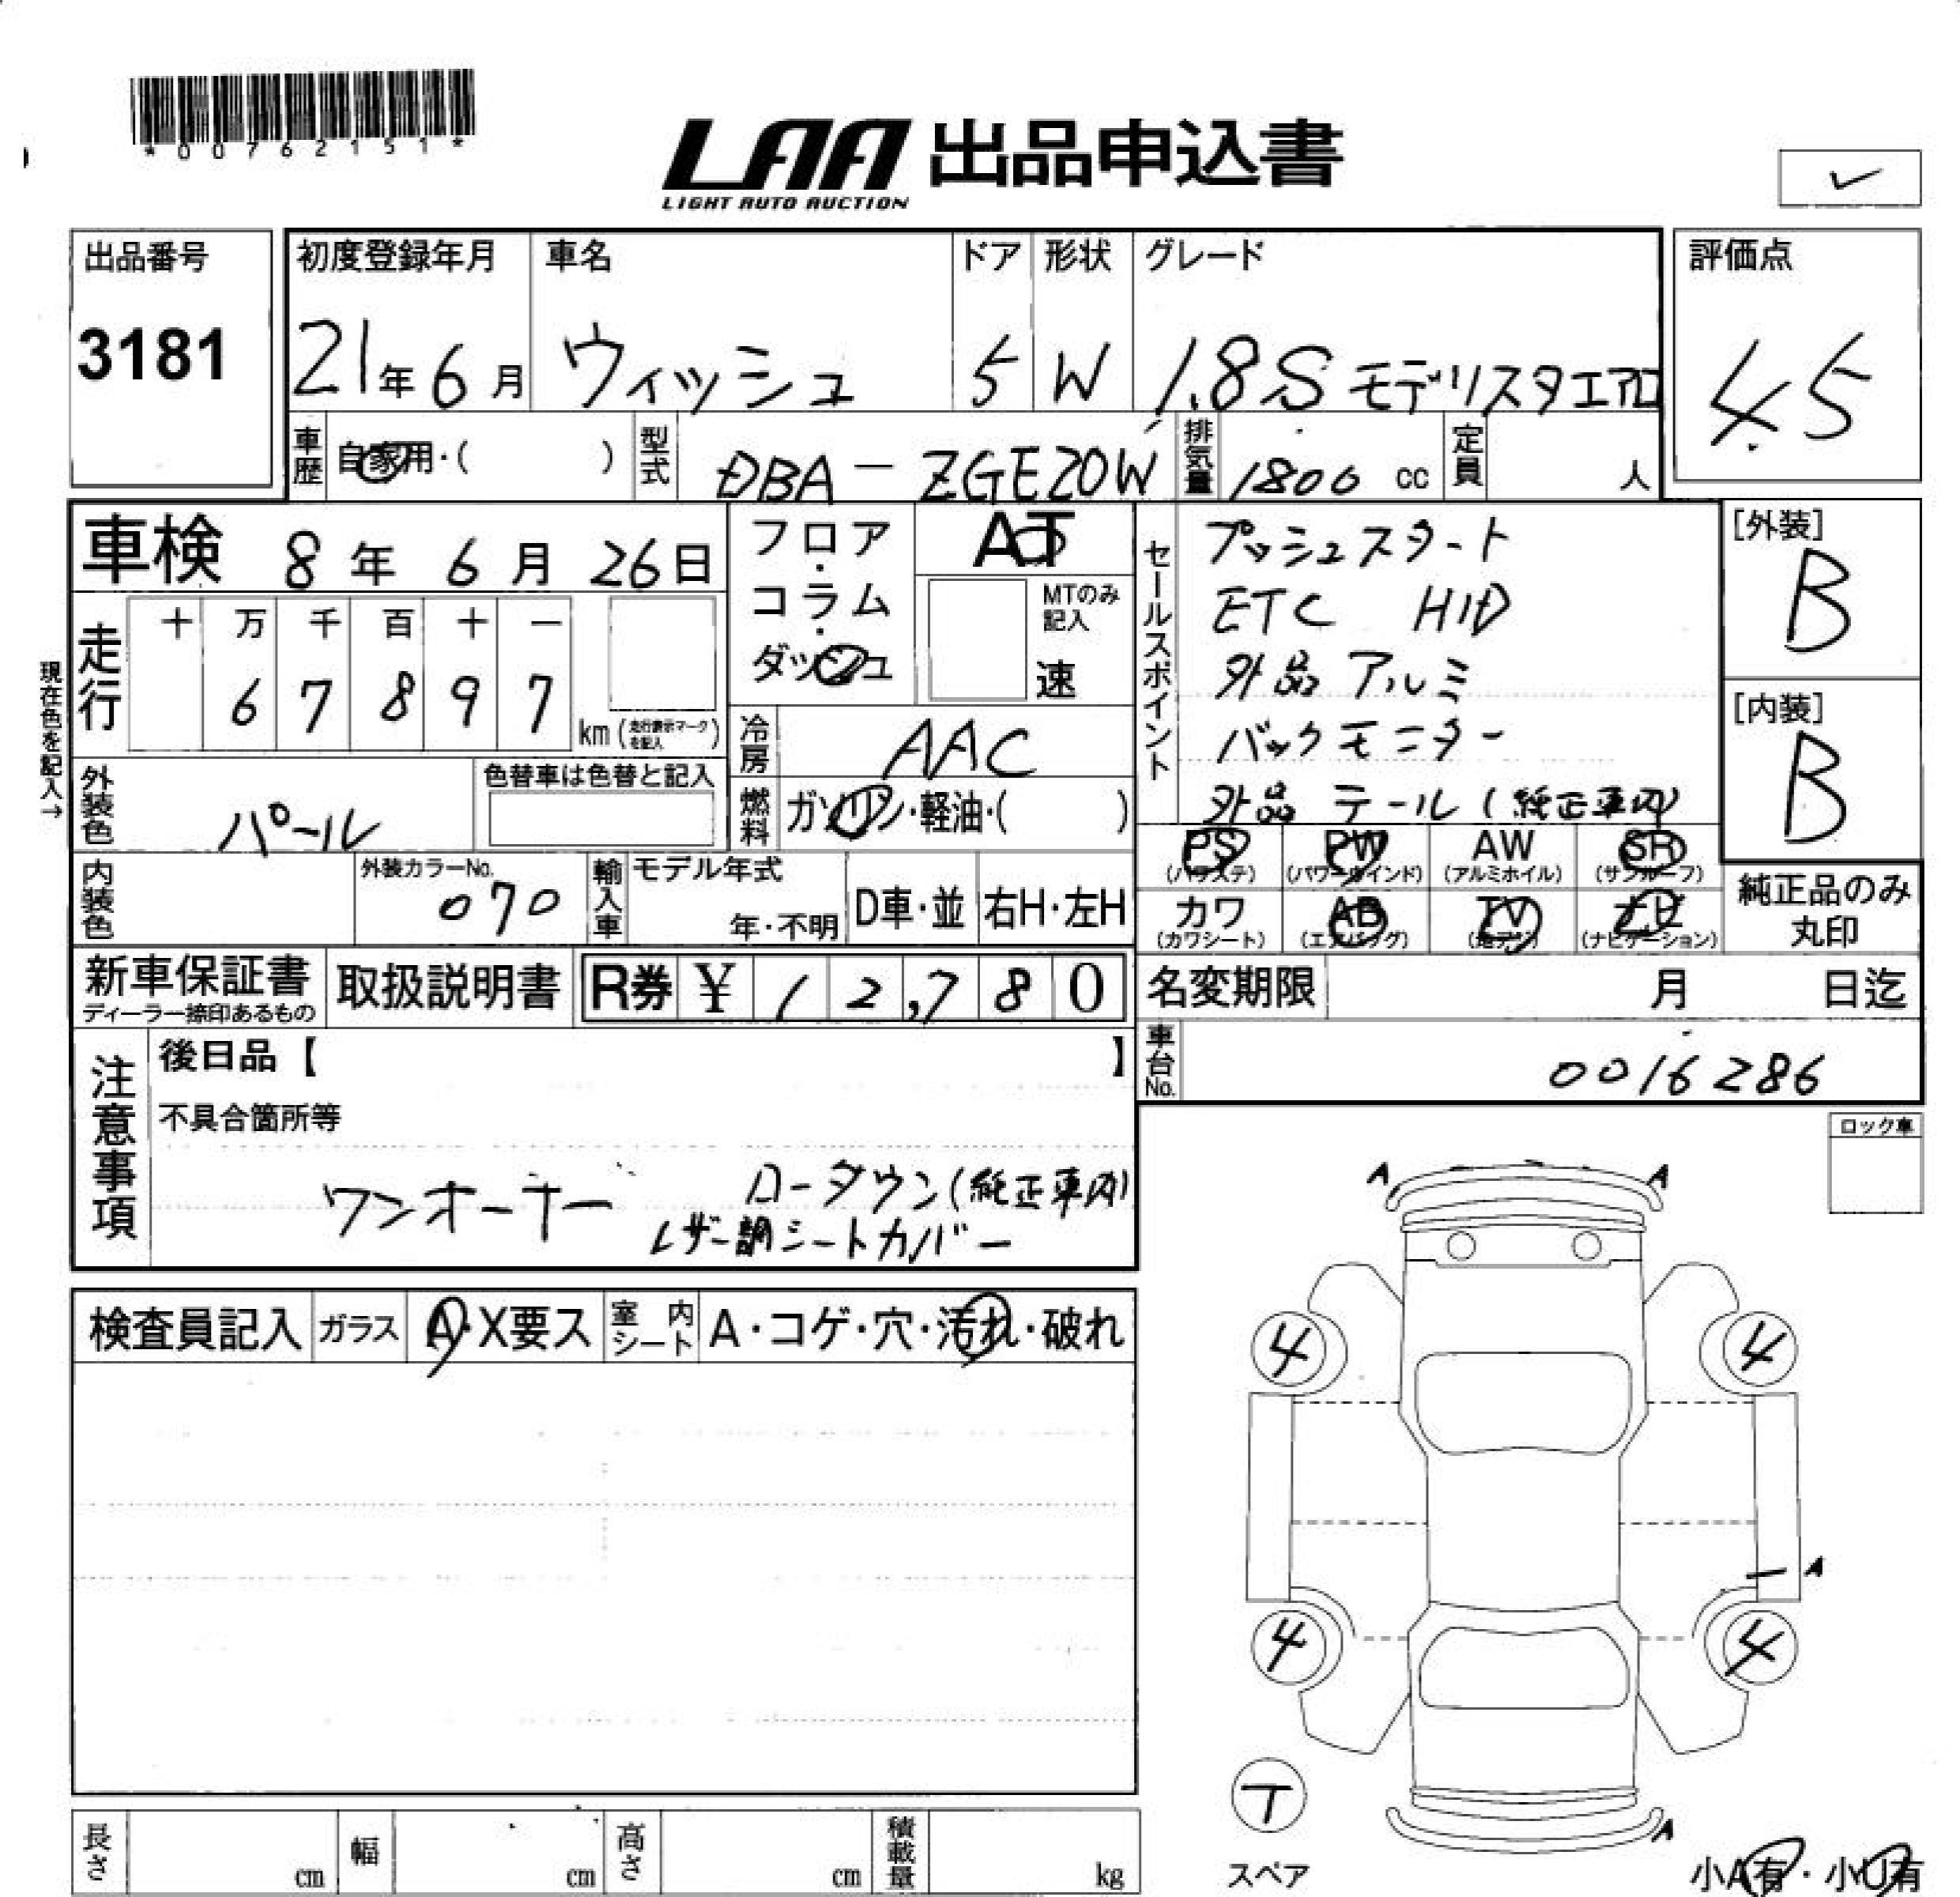 *00762151*
LAA 出品申込書
LIGHT AUTO AUCTION
✓
出品番号
3181
初度登録年月
21年6月
車名
ウィッシュ
ドア
5
形状
W
グレード
1.8S モデリスタエアロ
評価点
4.5
車歴
自家用・( )
型式
DBA-ZGE20W
排気量
1800 cc
定員
人
車検 8年 6月 26日
フロア・コラム・ダッシュ
AT
MTのみ記入
速
セールスポイント
プッシュスタート
ETC HID
外品アルミ
バックモニター
外品テール(純正車内)
[外装]
B
[内装]
B
現在色を記入→
走行
十 万 千 百 十 一
6 7 8 9 7
km (走行表示マークを記入)
冷房
AAC
外装色
パール
色替車は色替と記入
燃料
ガソリン・軽油・( )
PS
(パワステ)
PW
(パワーウインド)
AW
(アルミホイル)
SR
(サンルーフ)
カワ
(カワシート)
AB
(エアバッグ)
TV
ナビ
(ナビゲーション)
純正品のみ
丸印
内装色
外装カラーNo.
070
輸入車
モデル年式
年・不明
D車・並
右H・左H
新車保証書
ディーラー捺印あるもの
取扱説明書
R券 ¥ 12,780
名変期限 月 日迄
車台No.
0016286
注意事項
後日品【 】
不具合箇所等
ワンオーナー ローダウン(純正車内)
レザー調シートカバー
ロック車
A A
検査員記入
ガラス
A・X要ス
室内シート
A・コゲ・穴・汚れ・破れ
4 4
A
4 4
T
スペア
A
小A有・小U有
長さ cm
幅 cm
高さ cm
積載量 kg